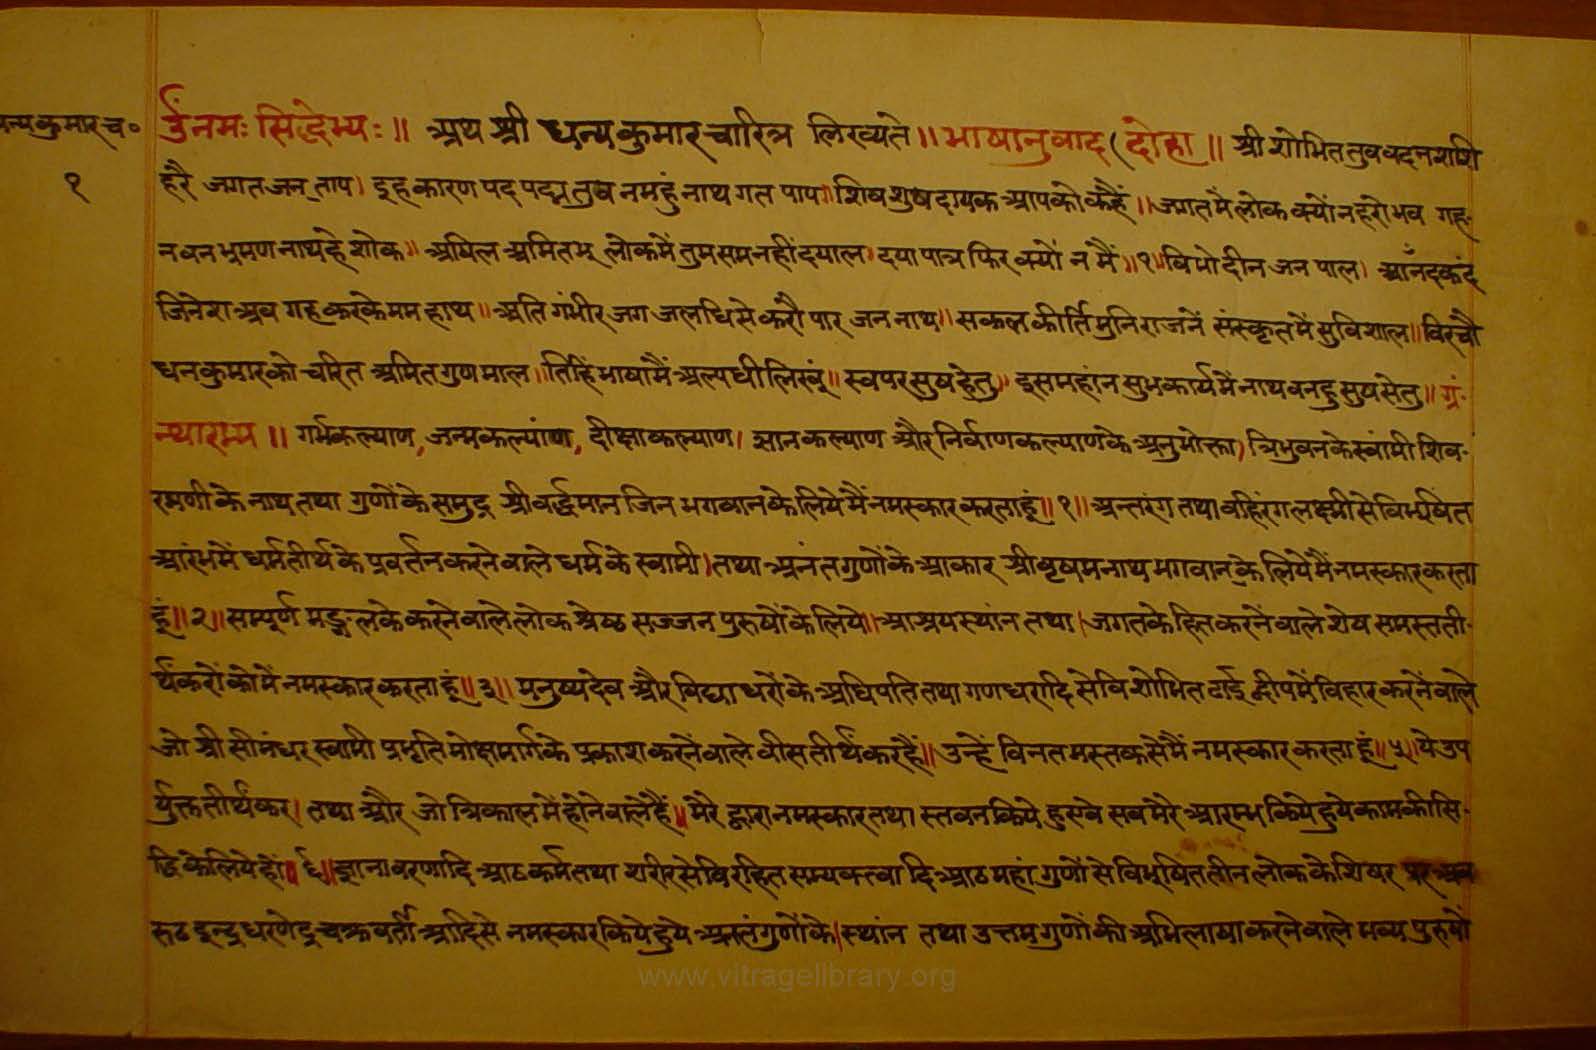 धन्यकुमारच०
१
ॐ नमः सिद्धेभ्यः ॥ अथ श्री धन्यकुमारचारित्र लिख्यते ॥ भाषानुवाद (दोहा ॥ श्री शोभित तुव वदन शशि
हरै जगत जन ताप। इह कारण पद पद्म तुव नमहुं नाथ गत पाप॥ शिव शुष दायक आपको कहैं ॥ जगत मैं लोक क्यों न हरो भव गह-
न वन भ्रमण नाथ हे शोक ॥ अषिल अमित भू लोक में तुम सम नहीं दयाल। दया पात्र फिर क्यों न मैं ॥१॥ विभो दीन जन पाल। आनँद कंद
जिनेश अब गह करके मम हाथ ॥ अति गंभीर जग जलधि से करौ पार जन नाथ॥ सकलकीर्ति मुनिराजनें संस्कृत में सुविशाल॥ विरचौ
धनकुमार को चरित अमित गुण माल॥ तिहिं भाषा मैं अल्पधी लिखूं॥ स्वपर सुष हेतु॥ इस महांन सुभ कार्य में नाथ वनहु सुष सेतु॥ ग्रं-
न्थारम्भ ॥ गर्भकल्याण, जन्मकल्यांण, दीक्षाकल्याण। ज्ञानकल्याण और निर्वाणकल्याणके अनुभोक्ता। त्रिभुवन के स्वांमी शिव-
रमणी के नाथ तथा गुणों के समुद्र श्री वर्द्धमान जिन भगवान के लिये मैं नमस्कार करता हूं॥१॥ अन्तरंग तथा वहिरंग लक्ष्मी से विभूषित
आरंभ में धर्म तीर्थ के प्रवर्तन करने वाले धर्म के स्वामी। तथा अनंत गुणों के आकार श्री वृषभनाथ भगवान के लिये मैं नमस्कार करता
हूं॥२॥ सम्पूर्ण मङ्गल के करने वाले लोक श्रेष्ठ सज्जन पुरुषों के लिये। आश्रय स्थांन तथा। जगत के हित करनें वाले शेष समस्त ती-
र्थंकरों को में नमस्कार करता हूं॥३॥ मनुष्य देव और विद्याधरों के अधिपति तथा गणधरादि से विशोभित ढाई द्वीप में विहार करनें वाले
जो श्री सीमंधर स्वामी प्रभृति मोक्षमार्ग के प्रकाश करनें वाले वीस तीर्थंकर हैं॥ उन्हें विनत मस्तक से मैं नमस्कार करता हूं॥५॥ ये उप
र्युक्त तीर्थंकर। तथा और जो त्रिकाल में होने वाले हैं॥ मेरे द्वारा नमस्कार तथा स्तवन किये हुए वे सव मेरे आरम्भ किये हुये काम की सि-
द्धि के लिये हों॥६॥ ज्ञानावरणादि आठ कर्म तथा शरीर से विरहित सम्यक्त्वादि आठ महां गुणों से विभूषित तीन लोक के शिषर पर
रूढ इन्द्र धरणेंद्र चक्रवर्ती आदि से नमस्कार किये हुये अनंत गुणों के। स्थांन तथा उत्तम गुणों की अभिलाषा करने वाले भव्य पुरुषों
www.vitragelibrary.org